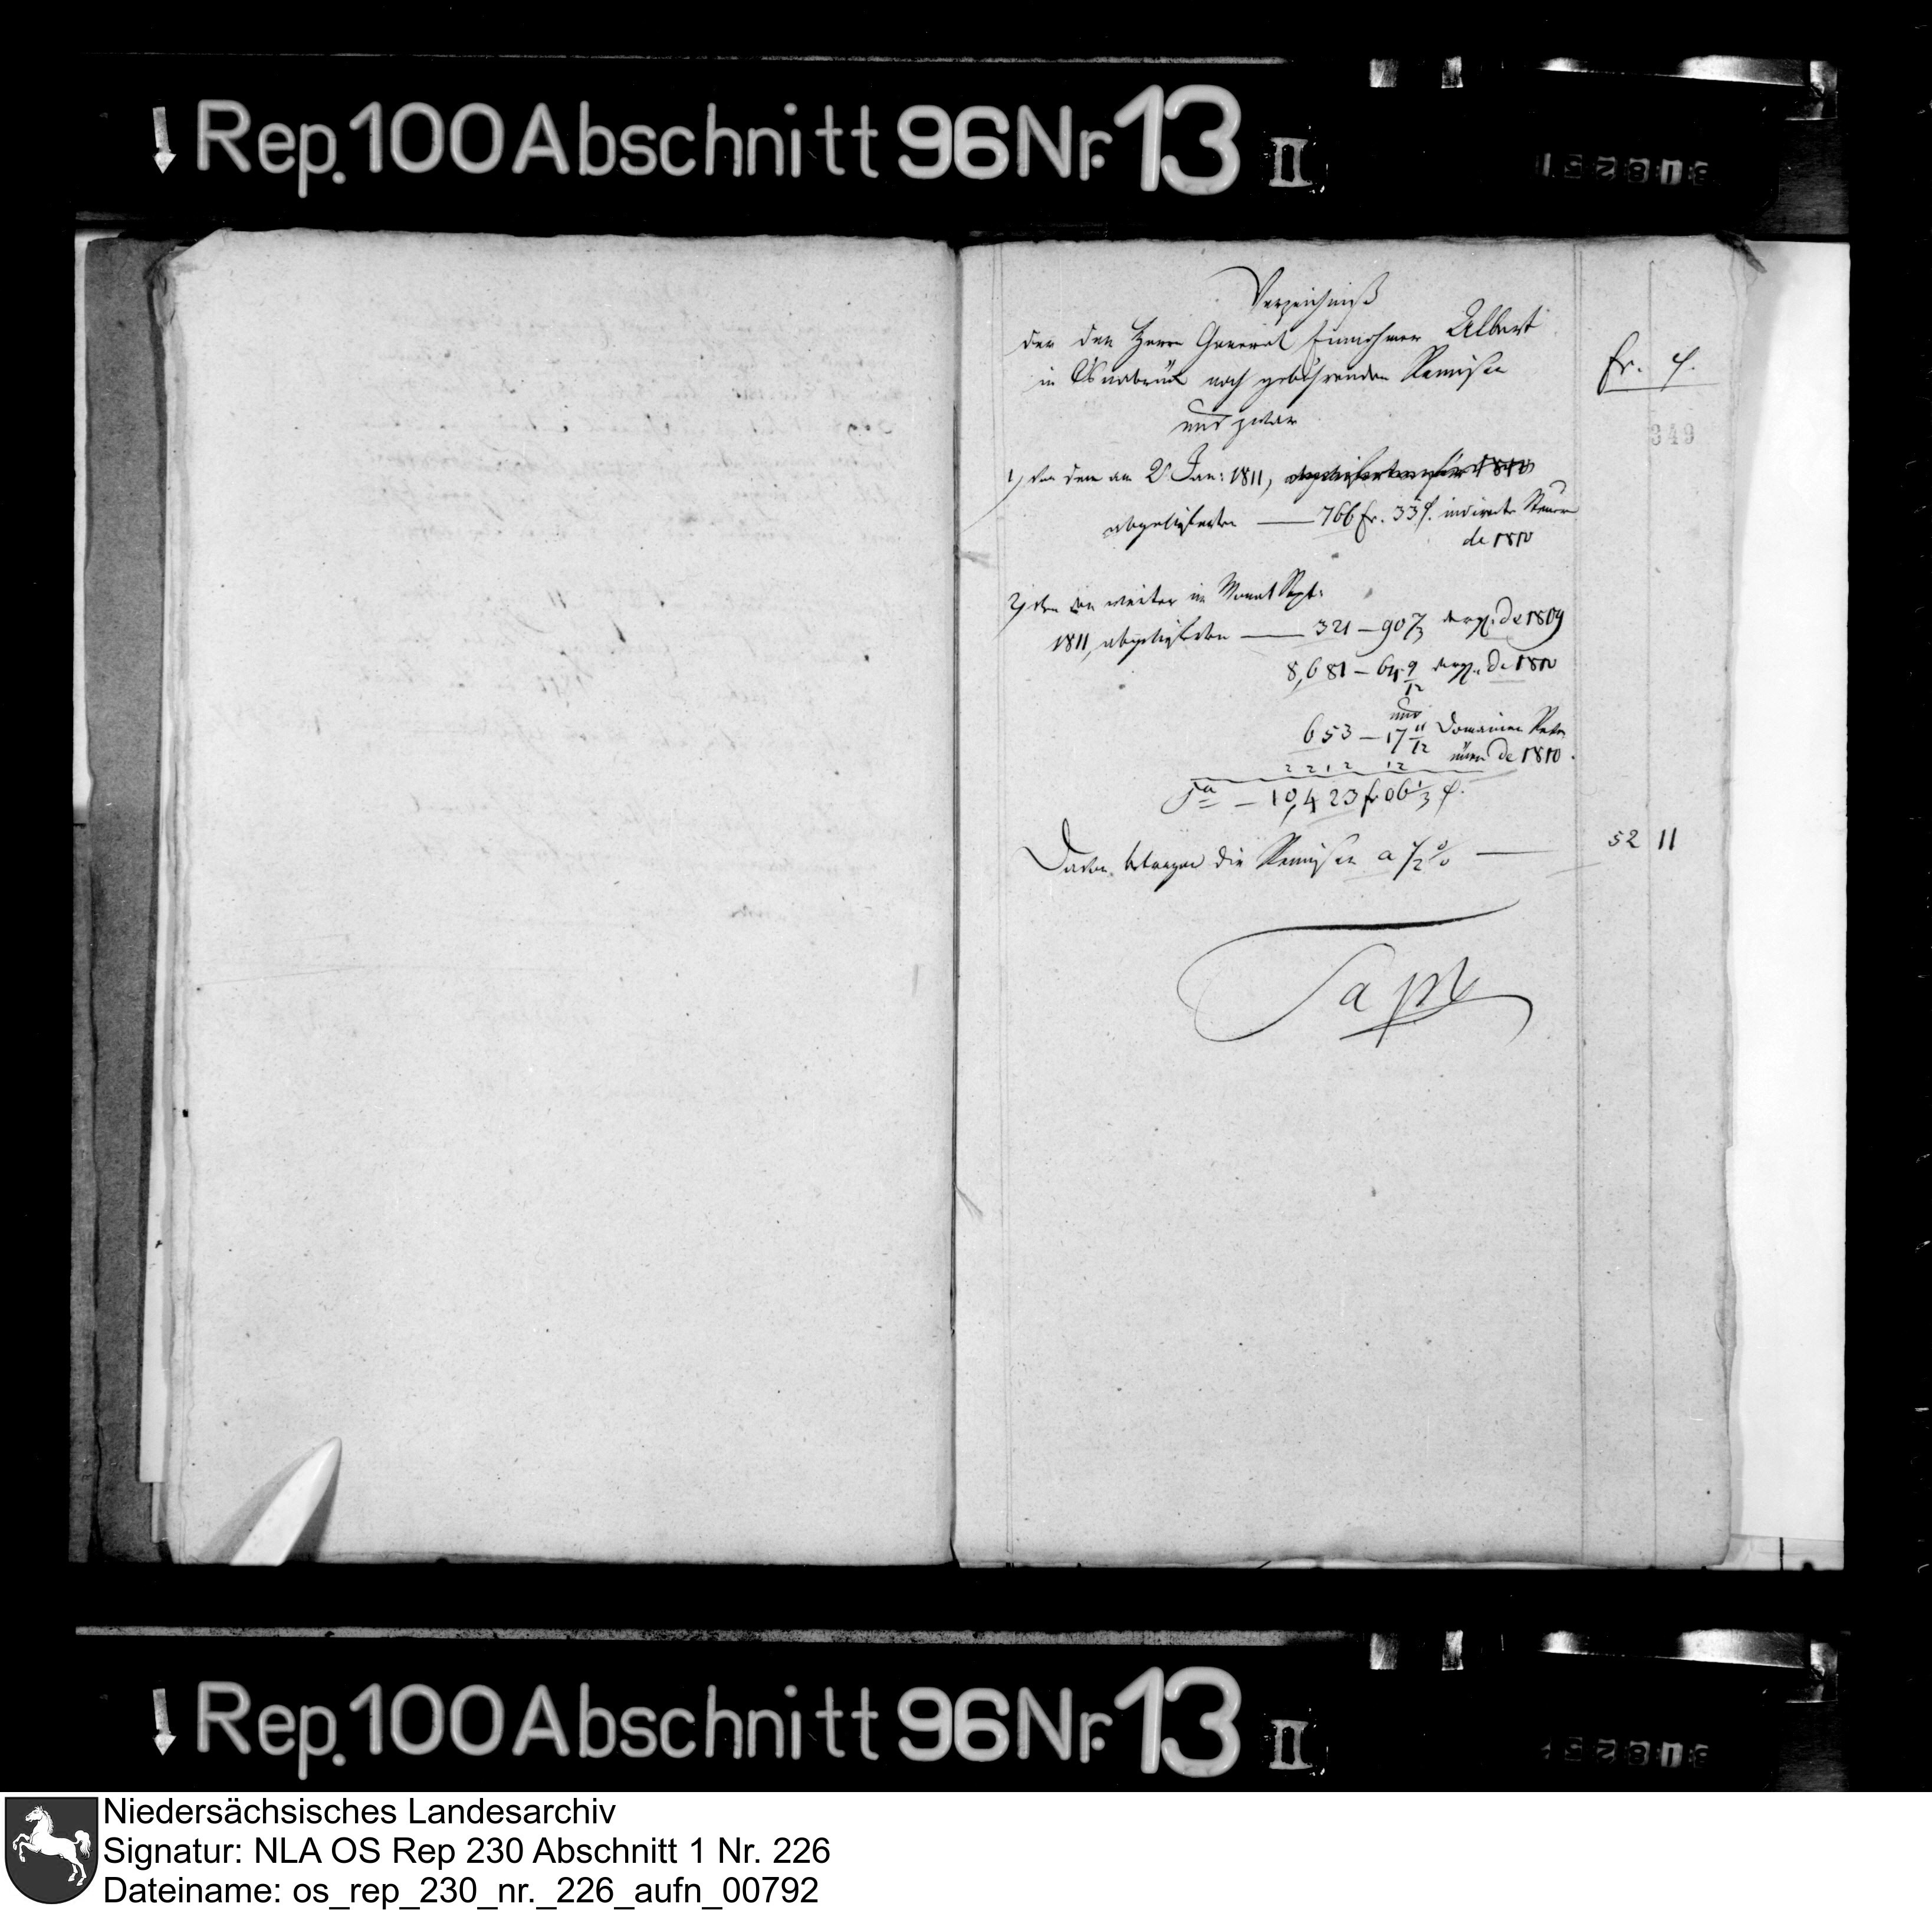 Rep. 100 Abschnitt 96 Nr. 13 II
Verzeichniß
der den Herrn General Einnehmer Albert
in Osnabrück noch gebührenden Remisen
und zwar
fr. c.
349
1, von dem am 2 Jan: 1811,
abgelieferten — 766 fr. 33 c. indirecte Steuern
de 1810
2, von den weiter im Monat Sept:
1811, abgelieferten — 321 — 90 2/3 de 1809
8,681 — 64 9/12 de 1810
und
653 — 17 11/12 Domainen
de 1810.
2 2 1 2 1 2
Sa — 10,423 fr 06 1/3 c.
Davon betragen die Remisen a 1/2 % — 52 11
Rep. 100 Abschnitt 96 Nr. 13 II
Niedersächsisches Landesarchiv
Signatur: NLA OS Rep 230 Abschnitt 1 Nr. 226
Dateiname: os_rep_230_nr._226_aufn_00792